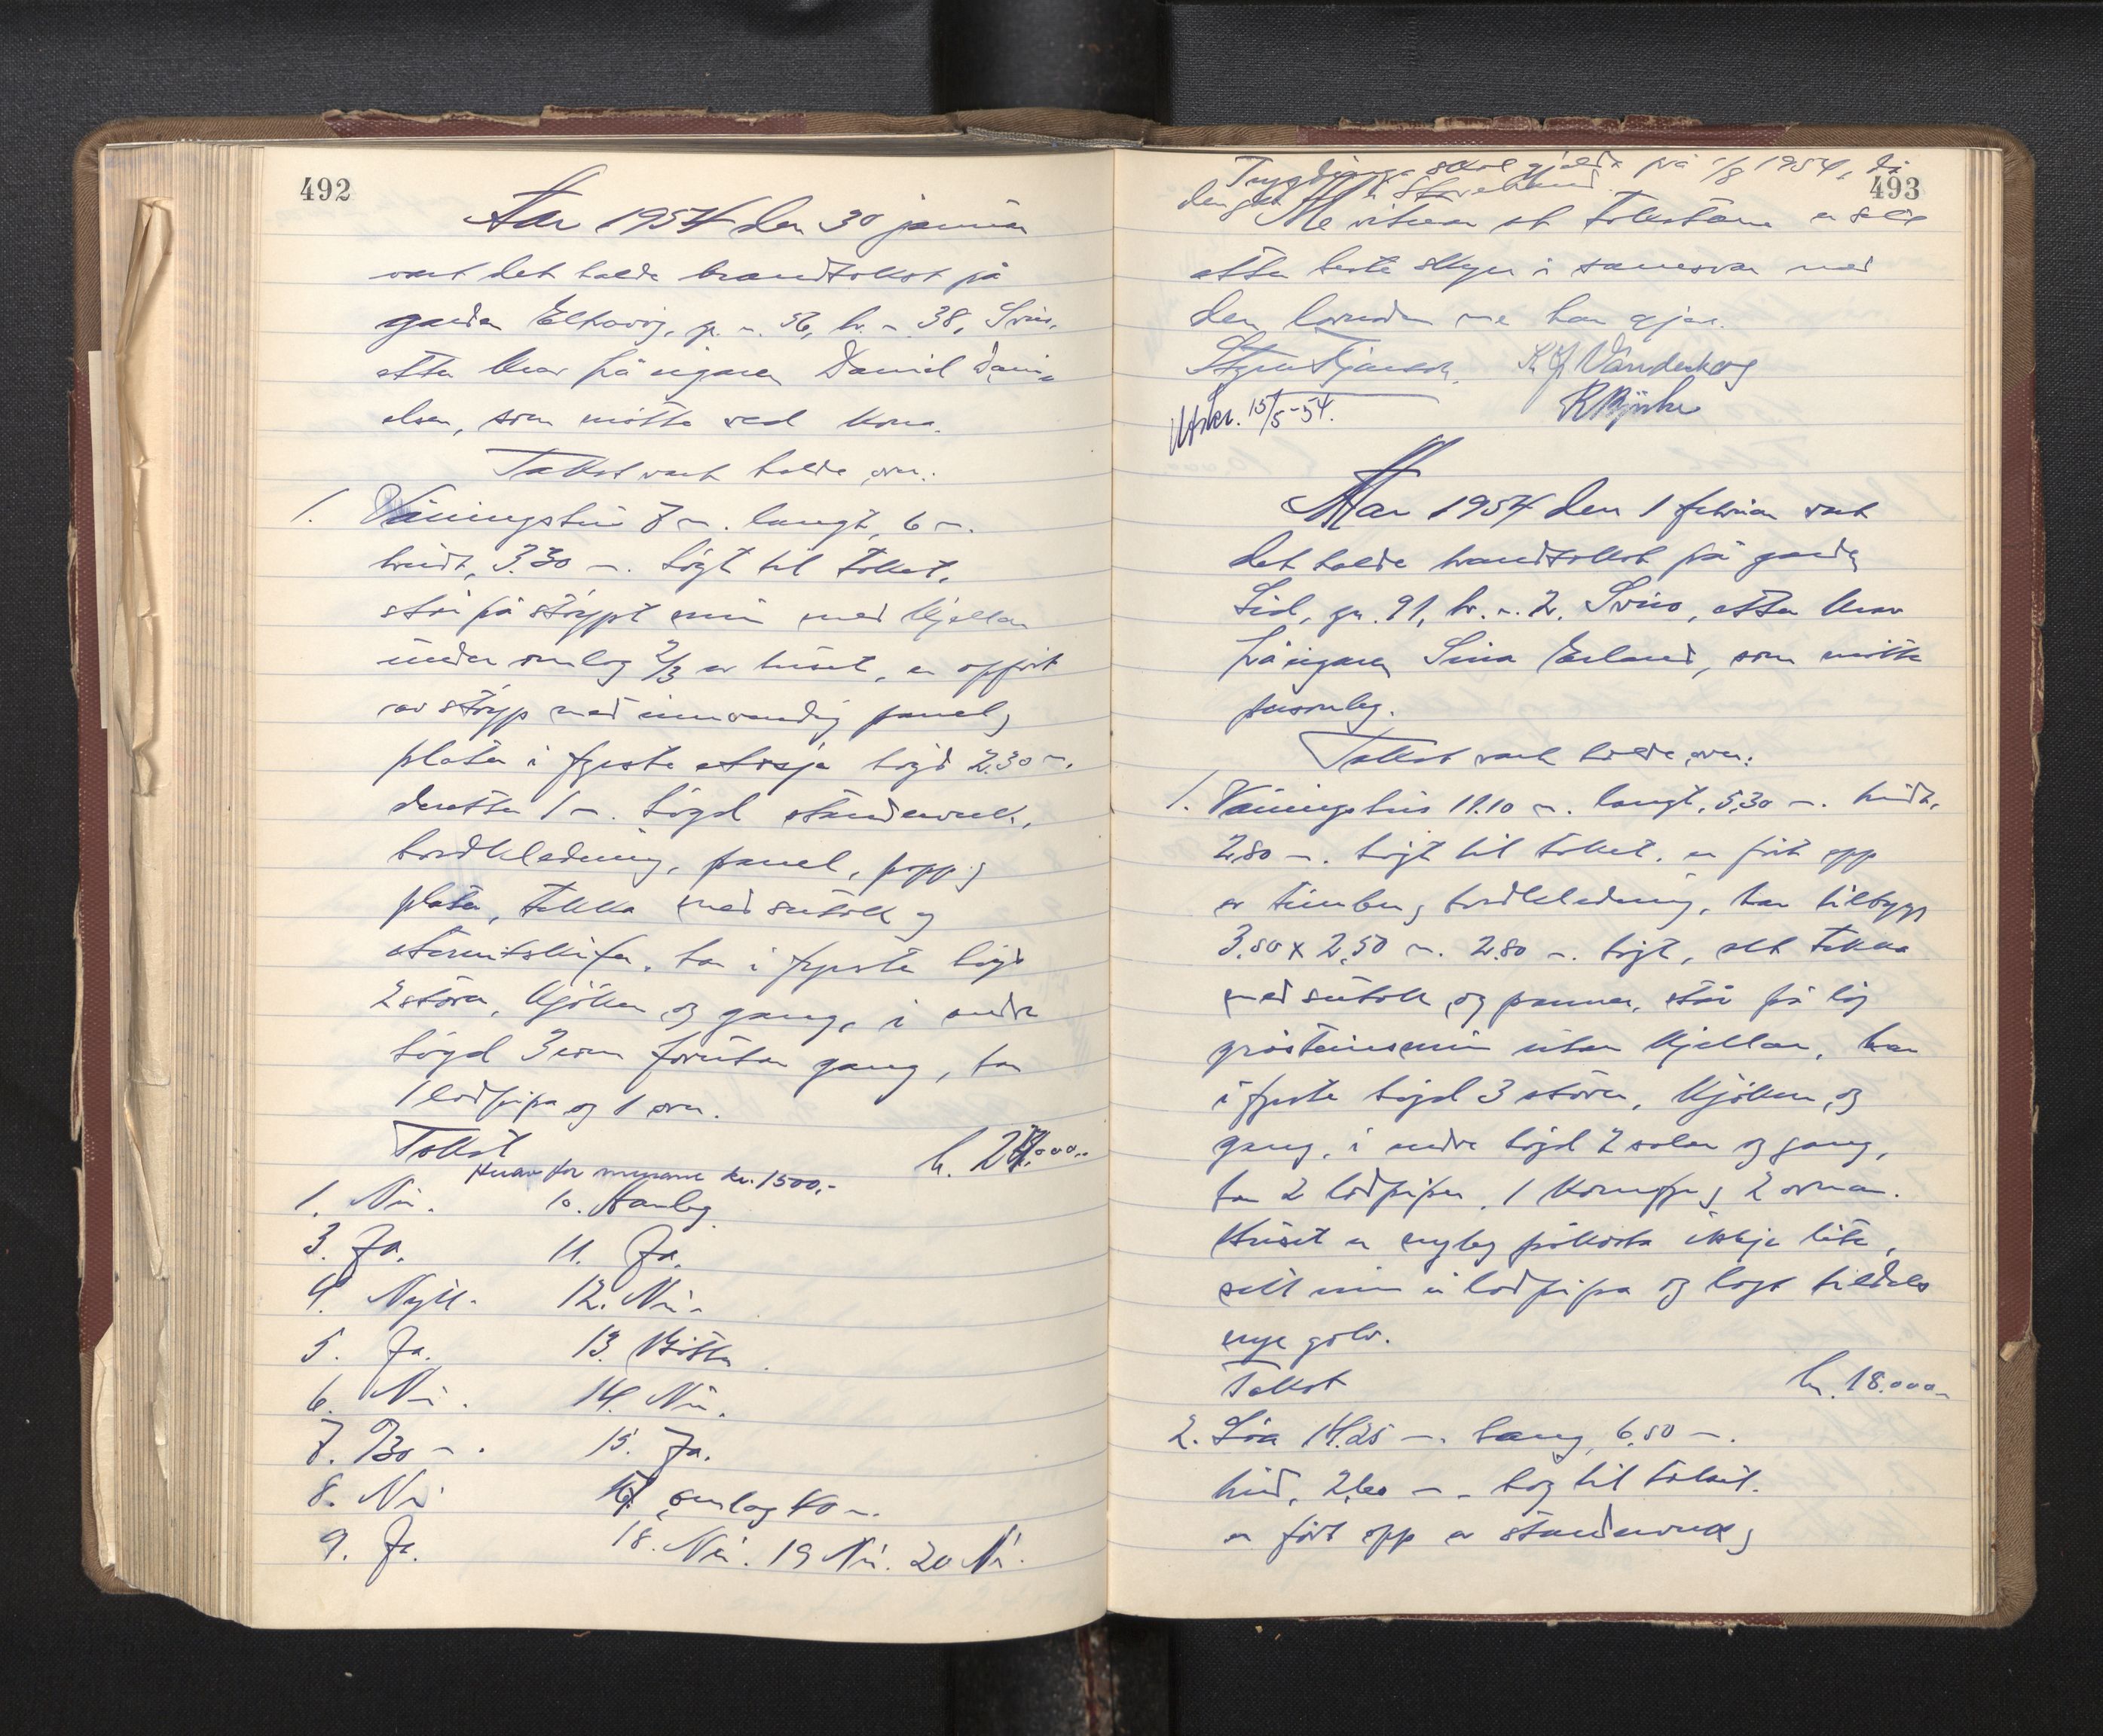 492
Aar 1954 den 30 januar
vart det halde brandtakst på
garden Eltravåg, g. n. 56, br. n. 38, Sveio,
etter krav frå eigaren Daniel Dani-
elsen, som møtte ved kona.
Takst vart halde over:
1. Våningshus 7 m. langt, 6 m.
breidt, 3.30 m. høgt til taket,
står på støypt mur med kjellar
under omlag 2/3 av huset, er oppført
av støyp med innvendig panel og
plater i fyrste etasje høgd 2.30 m.
deretter 1 m. høgd standerverk,
bordkledning, panel, papp og
plater, tekka med sutak og
eternitskifer, har i fyrste høgd
2 stover, kjøken og gang, i andre
høgd 3 rom forutan gang, har
1 lodpipa og 1 omn.
Takst kr. 24.000.-
Herav for murane kr. 1500,-
1. Nei. 10. Aarleg.
3. Ja. 11. Ja.
4. Nytt. 12. Nei.
5. Ja. 13. Bøtter.
6. Nei. 14. Nei.
7. 730 m. 15. Ja.
8. Nei 17. omlag 40 m.
9. Ja. 18. Nei. 19 Nei. 20 Nei.
493
Trygdinga skal gjelda frå 1/8 1954, då
den gjekk
Me vitnar at takstane er sett
etter beste skyn i samsvar med
den lovnaden me har gjeve.
K J Vandaskog
Utskr. 15/5-54. R Bjerke
Aar 1954 den 1 februar vart
det halde brandtakst på garden
Lid, gn. 91, br. n. 2, Sveio, etter krav
frå eigaren Sina Erland, som møtte
personleg.
Takst vart halde over:
1. Våningshus 11.10 m. langt, 5.30 m. breidt,
2.80 m. høgt til taket, er ført opp
av timber og bordkledning, har tilbygg
3.00 x 2.50 m. 2.80 m. høgt, alt tekka
med sutak og pannar, står på låg
gråsteinsmur utan kjellar, har
i fyrste høgd 3 stover, kjøken og
gang, i andre høgd 2 salar og gang,
har 2 lodpiper, 1 komfyr og 2 omnar.
Huset er nyleg påkosta ikkje lite,
sett inn ei lodpipa og lagt tildels
nye golv.
Takst kr. 18.000.-
2. Løa 14.25 m. lang, 6.50 m.
breid, 2.60 m. høg til taket.
er ført opp av standerverk og